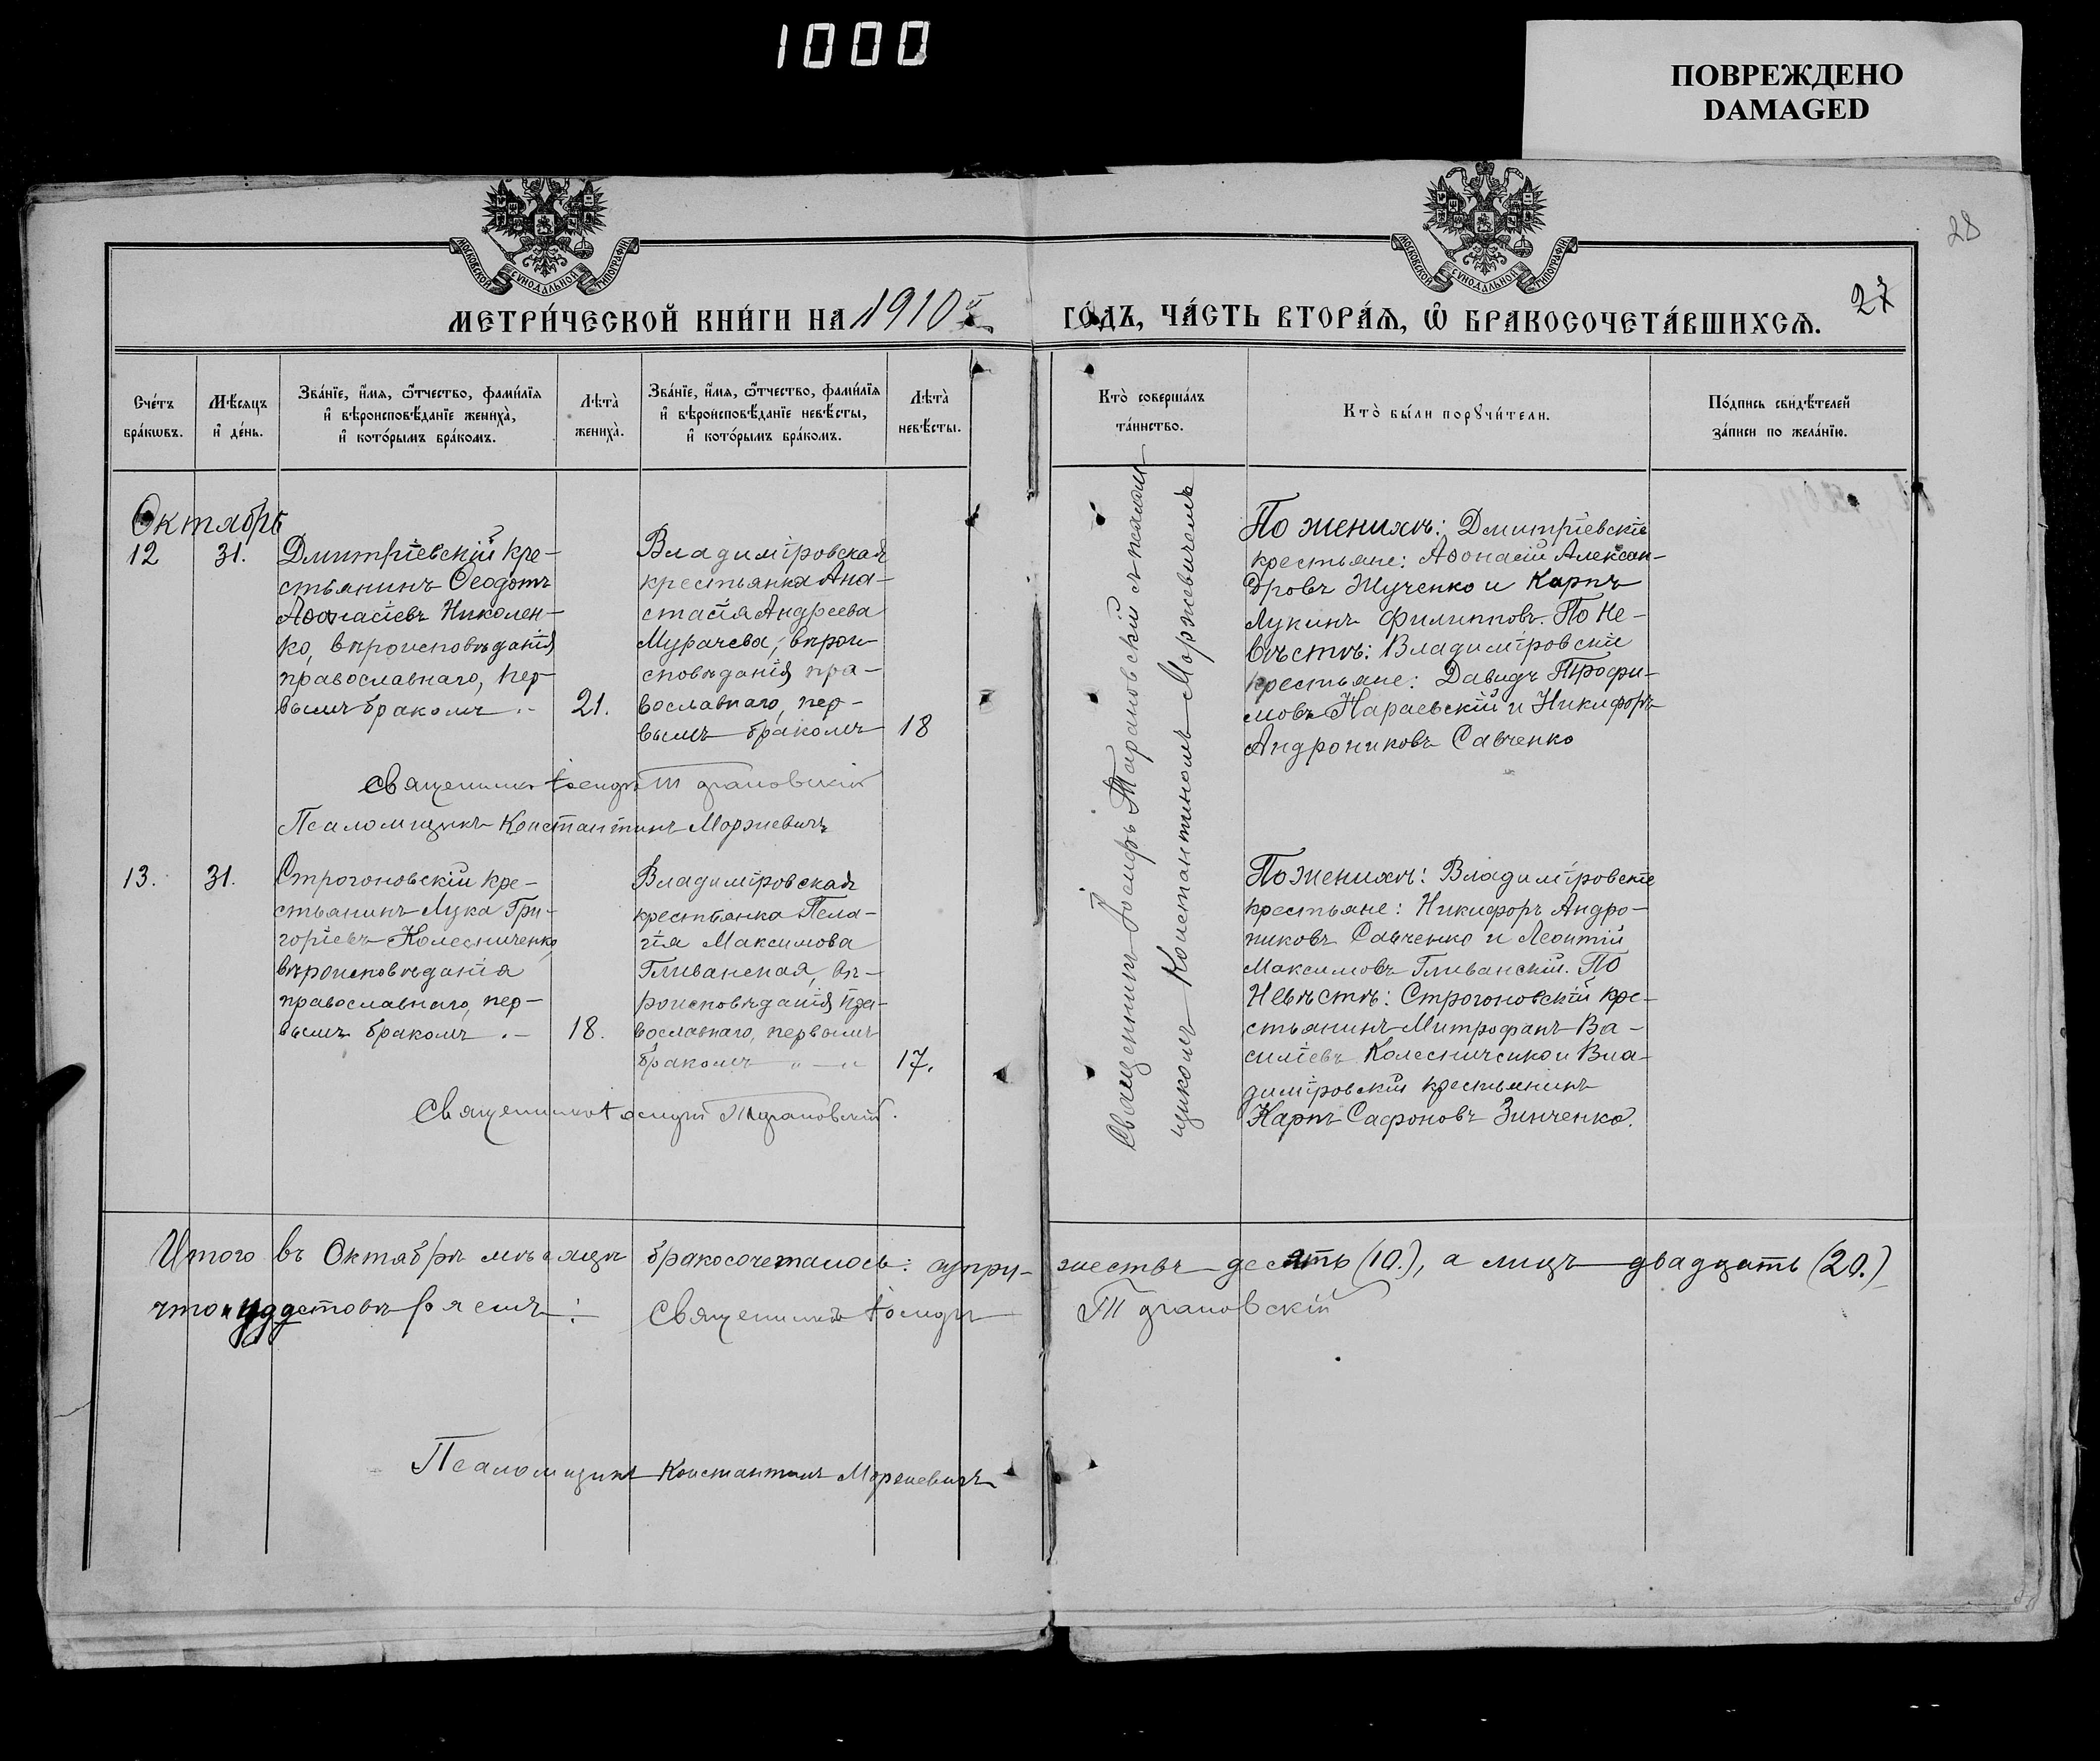 1000
ПОВРЕЖДЕНО
DAMAGED
28
27
МОСКОВСКОЙ СѴНОДАЛЬНОЙ ТИПОГРАФІИ
МОСКОВСКОЙ СѴНОДАЛЬНОЙ ТИПОГРАФІИ
МЕТРИ́ЧЕСКОЙ КНИ́ГИ НА 1910й ГО́ДЪ, ЧА́СТЬ ВТОРА́Ѧ, Ѽ БРАКОСОЧЕТА́ВШИХСѦ.
Сче́тъ
бра́кωвъ.
Мѣ́сяцъ
и҆ де́нь.
Зва́нїе, и҆́мя, ѻ҆́тчество, фами́лїя
и҆ вѣроисповѣ́данїе жениха̀,
и҆ кото́рымъ бра́комъ.
Лѣта̀
жениха̀.
Зва́нїе, и҆́мя, ѻ҆́тчество, фами́лїя
и҆ вѣроисповѣ́данїе невѣ́сты,
и҆ кото́рымъ бра́комъ.
Лѣта̀
невѣ́сты.
Кто̀ соверша́лъ
та́инство.
Кто̀ бы́ли порꙋчи́тели.
По́дпись свидѣ́телей
за́писи по жела́нїю.
Октябрь
12
31.
Дмитріевскій кре-
стьянинъ Ѳеодотъ
Аѳанасіевъ Николен-
ко, вѣроисповѣданія
православнаго, пер-
вымъ бракомъ.-
21.
Владиміровская
крестьянка Ана-
стасія Андреева
Мурачева, вѣрои-
сповѣданія пра-
вославнаго, пер-
вымъ бракомъ
18
Священникъ Іосифъ Тарановскій
Псаломщикъ Константинъ Моржевичъ
Священникъ Іосифъ Тарановскій съ псалом-
щикомъ Константиномъ Моржевичемъ
По женихѣ: Дмитріевскіе
крестьяне: Аѳонасій Алексан-
дровъ Жученко и Карпъ
Лукинъ Филипповъ. По не-
вѣстѣ: Владиміровскіе
крестьяне: Давидъ Трофи-
мовъ Караевскій и Никифоръ
Андрониковъ Савченко
13.
31.
Строгоновскій кре-
стьянинъ Лука Гри-
горіевъ Колесниченко,
вѣроисповѣданія
православнаго, пер-
вымъ бракомъ.-
18.
Владиміровская
крестьянка Пела-
гія Максимова
Гливанская, вѣ-
роисповѣданія пра-
вославнаго, первымъ
бракомъ " — "
17.
Священникъ Іосифъ Тарановскій.
По женихѣ: Владиміровскіе
крестьяне: Никифоръ Андро-
никовъ Савченко и Леонтій
Максимовъ Гливанскій. По
Невѣстѣ: Строгоновскій кре-
стьянинъ Митрофанъ Ва-
силіевъ Колесниченко и Вла-
диміровскій крестьянинъ
Карпъ Сафоновъ Зинченко.
Итого въ Октябрѣ мѣсяцѣ бракосочеталось: супру- жествъ десять (10.), а лицъ двадцать (20.)
что и удостовѣряемъ: Священникъ Іосифъ Тарановскій
Псаломщикъ Константинъ Моржевичъ